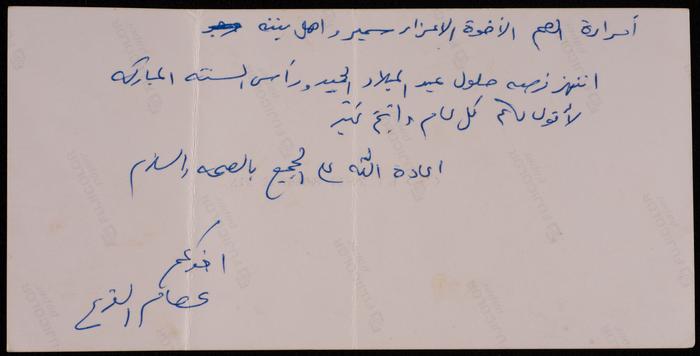 الأخوة الاعزاء سمير واهل بيته
انتهز فرصه حلول عيد الميلاد المجيد ورأس السنه المباركه
لأقول لكم كل عام وانتم بخير
اعاده الله على الجميع بالصحه والسلام
اخوكم
عصام
FUJICOLOR